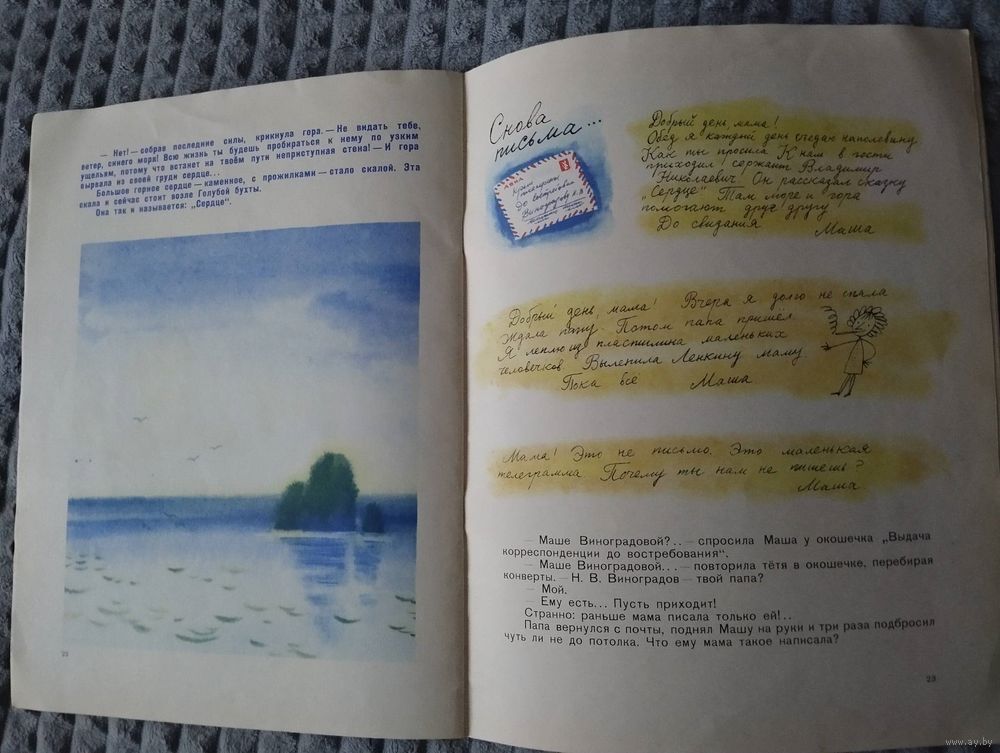 — Нет! — собрав последние силы, крикнула гора. — Не видать тебе,
ветер, синего моря! Всю жизнь ты будешь пробираться к нему по узким
ущельям, потому что встанет на твоём пути неприступная стена! — И гора
вырвала из своей груди сердце...
Большое горное сердце — каменное, с прожилками — стало скалой. Эта
скала и сейчас стоит возле Голубой бухты.
Она так и называется: „Сердце“.
22
Снова
письма...
АВИА
Крым
Планерское
До востребования
Виноградову Н.В.
Добрый день мама!
Обед я каждый день съедаю наполовину
Как ты просила К нам в гости
приходил сержант Владимир
Николаевич. Он рассказал сказку
„Сердце“ Там море и гора
помогают друг другу!
До свидания Маша
Добрый день, мама! Вчера я долго не спала
Ждала папу. Потом папа пришел
Я леплю из пластилина маленьких
человечков. Вылепила Ленкину маму
Пока всё Маша
Мама! Это не письмо. Это маленькая
телеграмма Почему ты нам не пишешь?
Маша
— Маше Виноградовой?.. — спросила Маша у окошечка „Выдача
корреспонденции до востребования“.
— Маше Виноградовой... — повторила тётя в окошечке, перебирая
конверты. — Н. В. Виноградов — твой папа?
— Мой.
— Ему есть... Пусть приходит!
Странно: раньше мама писала только ей!..
Папа вернулся с почты, поднял Машу на руки и три раза подбросил
чуть ли не до потолка. Что ему мама такое написала?
23
www.ay.by